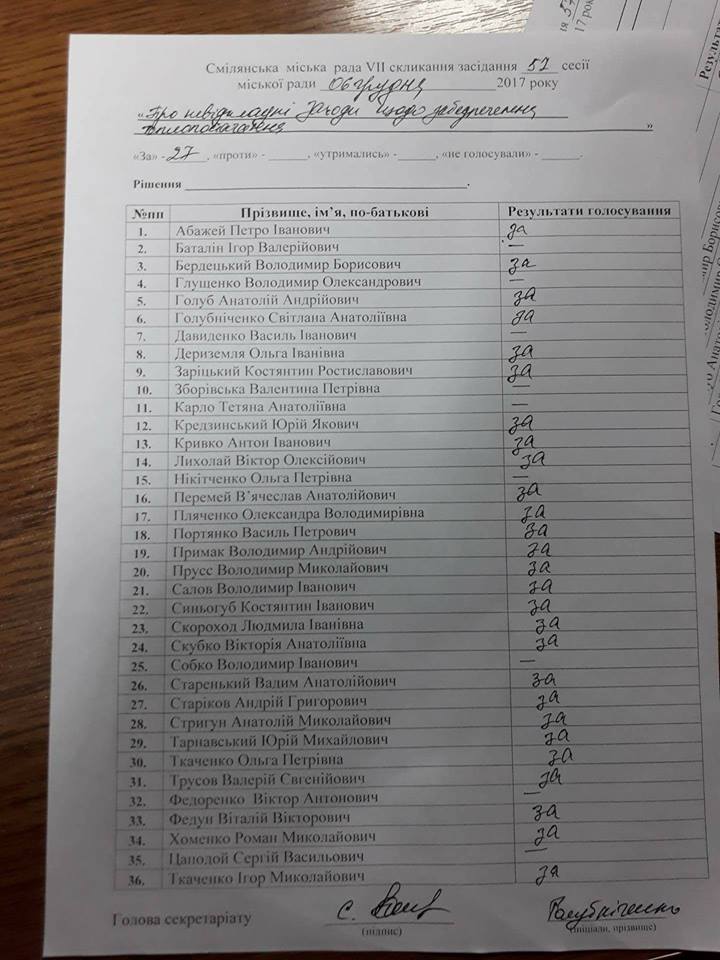 Смілянська міська рада VII скликання засідання 51 сесії
міської ради 06 грудня 2017 року
«Про невідкладні заходи щодо забезпечення
теплопостачання»
«За» - 27, «проти» - ______, «утримались» - ______, «не голосували» - ______.
Рішення ______.
№пп Прізвище, ім’я, по-батькові Результати голосування
1. Абажей Петро Іванович за
2. Баталін Ігор Валерійович —
3. Бердецький Володимир Борисович за
4. Глущенко Володимир Олександрович —
5. Голуб Анатолій Андрійович за
6. Голубніченко Світлана Анатоліївна за
7. Давиденко Василь Іванович —
8. Дериземля Ольга Іванівна за
9. Заріцький Костянтин Ростиславович за
10. Зборівська Валентина Петрівна —
11. Карло Тетяна Анатоліївна —
12. Кредзинський Юрій Якович за
13. Кривко Антон Іванович за
14. Лихолай Віктор Олексійович за
15. Нікітченко Ольга Петрівна —
16. Перемей В’ячеслав Анатолійович за
17. Пляченко Олександра Володимирівна за
18. Портянко Василь Петрович за
19. Примак Володимир Андрійович за
20. Прусс Володимир Миколайович за
21. Салов Володимир Іванович за
22. Синьогуб Костянтин Іванович за
23. Скороход Людмила Іванівна за
24. Скубко Вікторія Анатоліївна за
25. Собко Володимир Іванович —
26. Старенький Вадим Анатолійович за
27. Старіков Андрій Григорович за
28. Стригун Анатолій Миколайович за
29. Тарнавський Юрій Михайлович за
30. Ткаченко Ольга Петрівна за
31. Трусов Валерій Євгенійович за
32. Федоренко Віктор Антонович —
33. Федун Віталій Вікторович за
34. Хоменко Роман Миколайович за
35. Цаподой Сергій Васильович —
36. Ткаченко Ігор Миколайович за
Голова секретаріату Голубніченко
(підпис) (ініціали, прізвище)